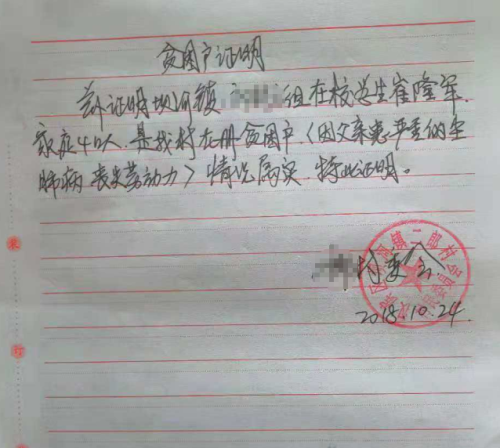 贫困户证明
兹证明坝河镇 组在校学生崔隆军
家庭4口人,是我村在册贫困户(因父亲患严重的尘
肺病丧失劳动力)情况属实,特此证明。
村委会
2018.10.24
装
订